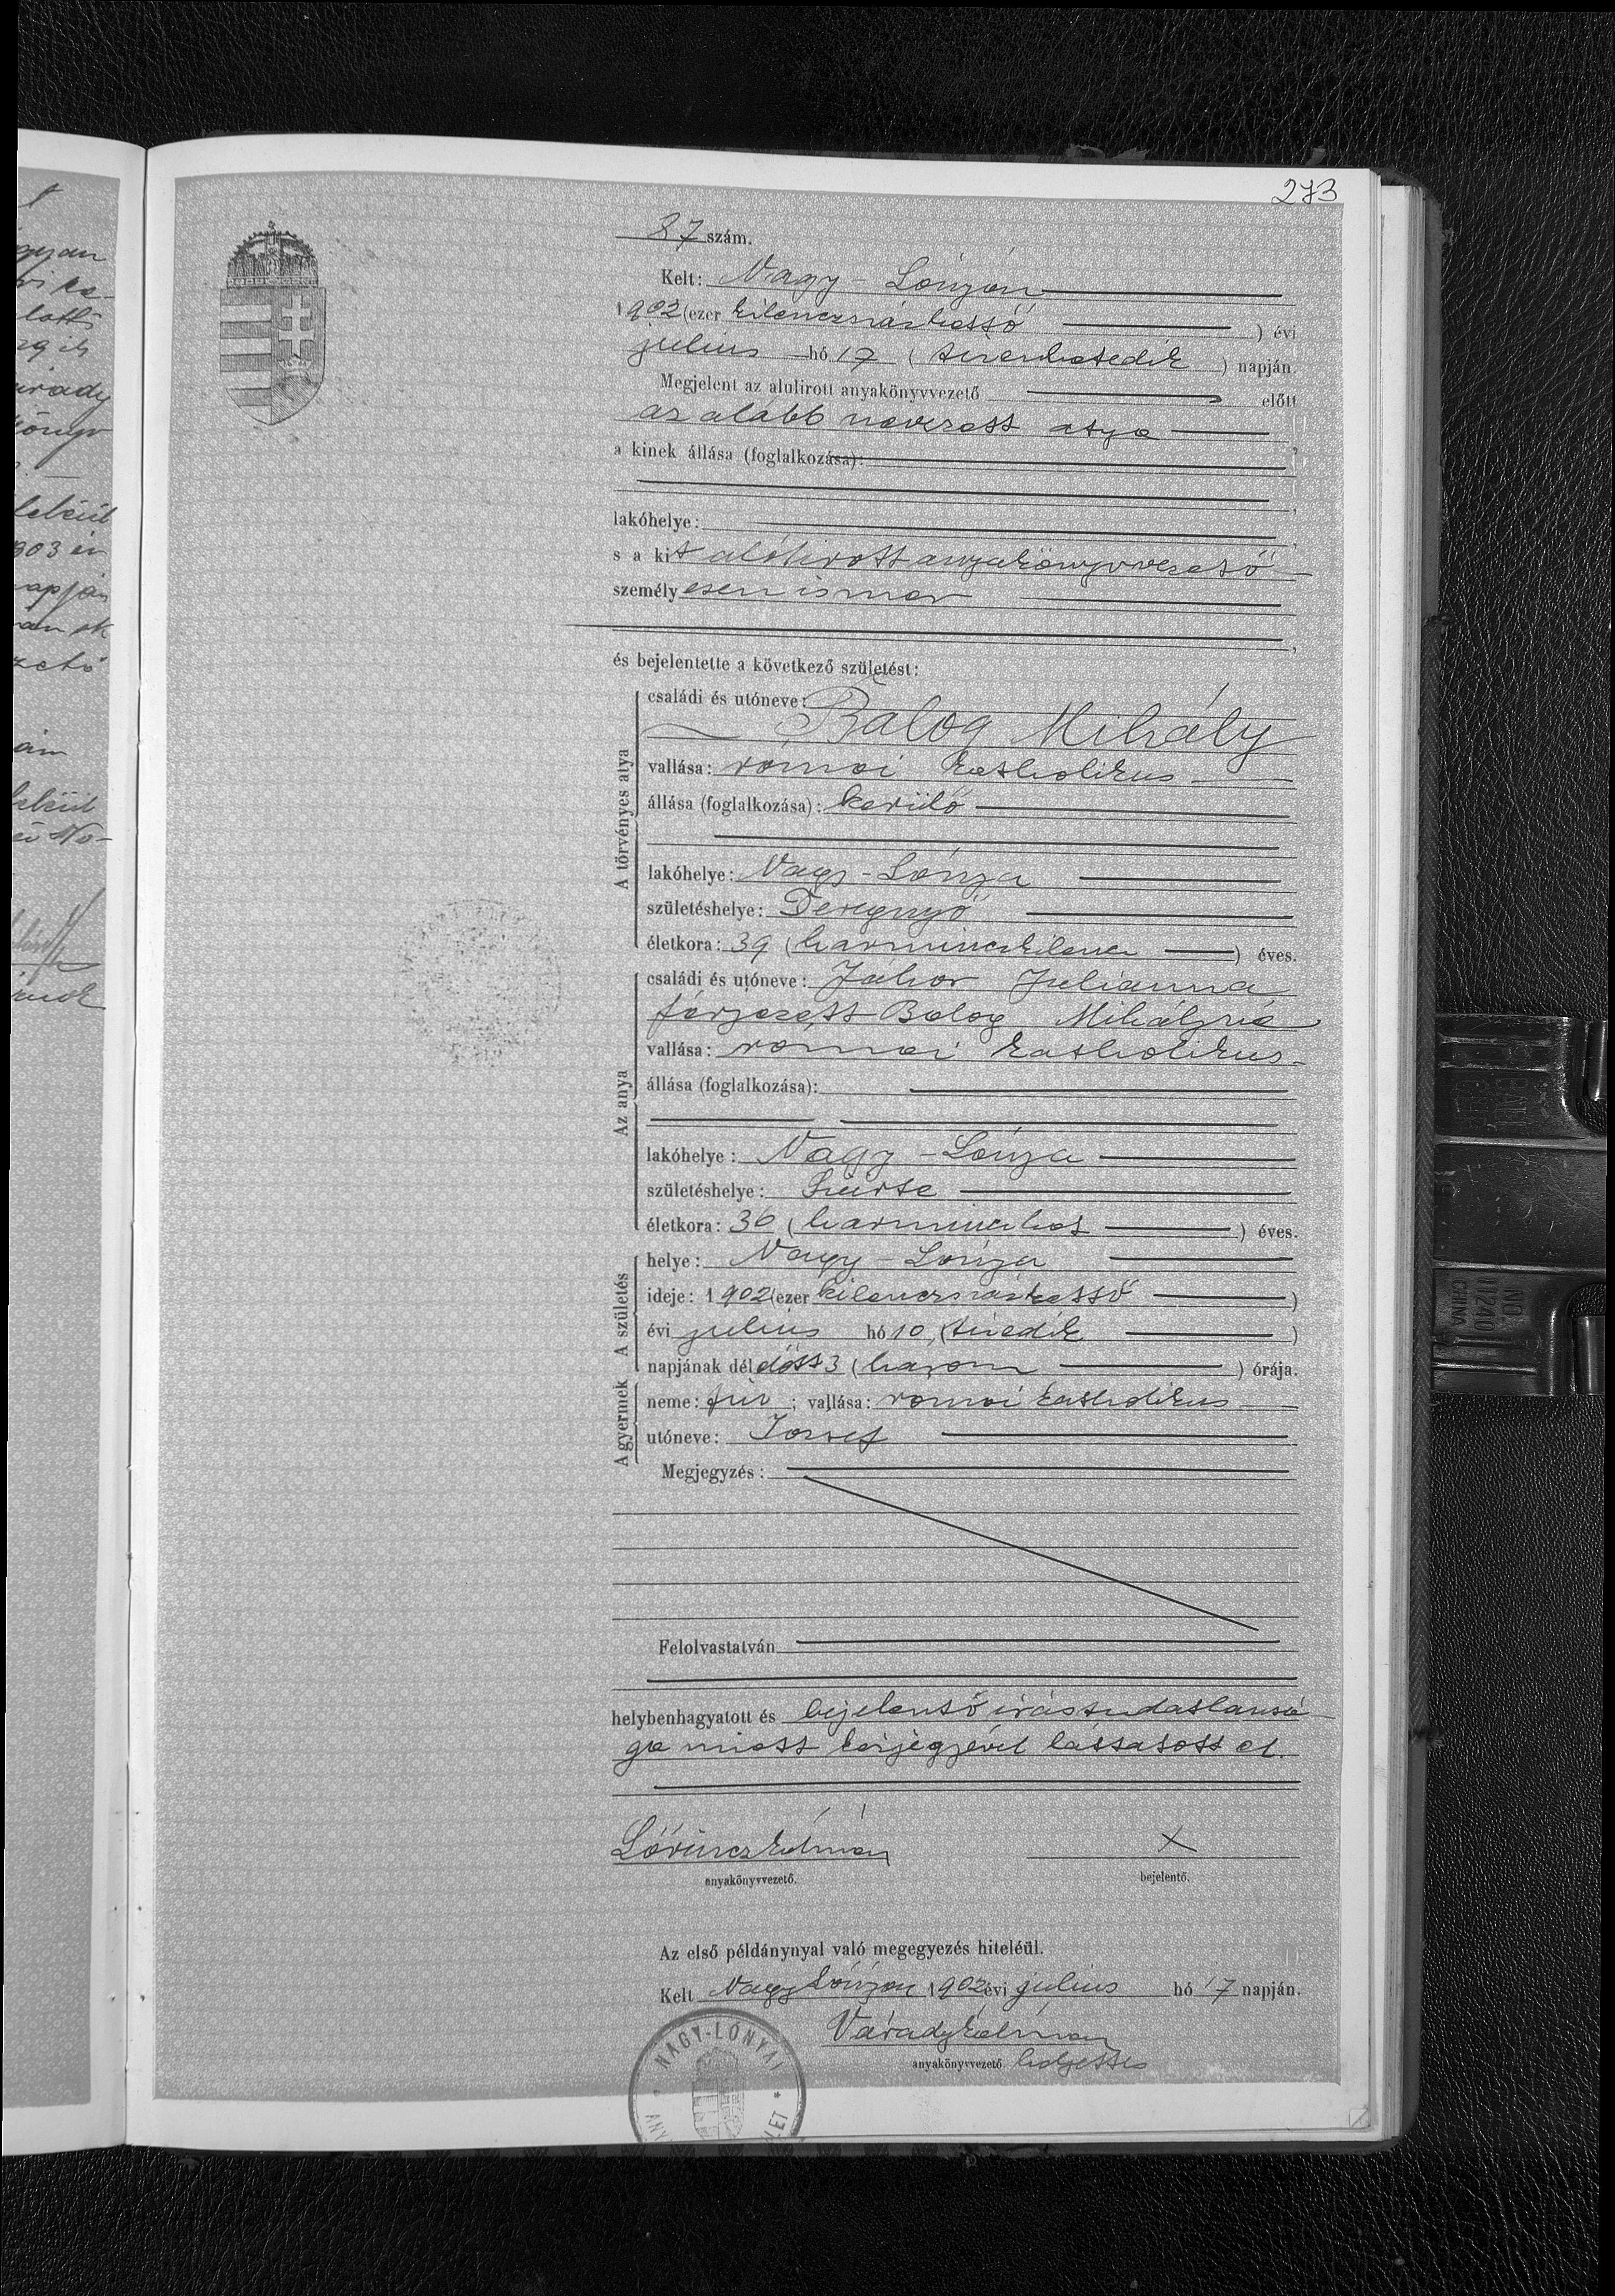 273
87 szám.
Kelt: Nagy-Lónyán
1902 (ezer kilenczszázkettő) évi
julius hó 17 (tizenhetedik) napján.
Megjelent az alulirott anyakönyvvezető előtt
az alább nevezett atya,
a kinek állása (foglalkozása):
lakóhelye:
s a kit alólirott anyakönyvvezető
személyesen ismer
és bejelentette a következő születést:
A törvényes atya
családi és utóneve:
Balog Mihály
vallása: római katholikus
állása (foglalkozása): kerülő
lakóhelye: Nagy-Lónya
születéshelye: Deregnyő
életkora: 39 (harminczkilencz) éves.
Az anya
családi és utóneve: Jáhor Julianna
férjezett Balog Mihályné
vallása: római katholikus
állása (foglalkozása):
lakóhelye: Nagy-Lónya
születéshelye: Szürte
életkora: 36 (harminczhat) éves.
A születés
helye: Nagy-Lónya
ideje: 1902 (ezer kilenczszázkettő)
évi julius hó 10 (tizedik)
napjának délelőtt 3 (három) órája.
A gyermek
neme: fiu; vallása: római katholikus
utóneve: József
Megjegyzés:
Felolvastatván
helybenhagyatott és bejelentő irástudatlansá-
ga miatt kézjegyével láttatott el.
Lőrincz Kálmán X
anyakönyvvezető. bejelentő.
Az első példánynyal való megegyezés hiteléül.
Kelt Nagy Lónyán 1902 évi julius hó 17 napján.
Várady Kálmán
anyakönyvvezető helyettes
NAGY-LÓNYAI